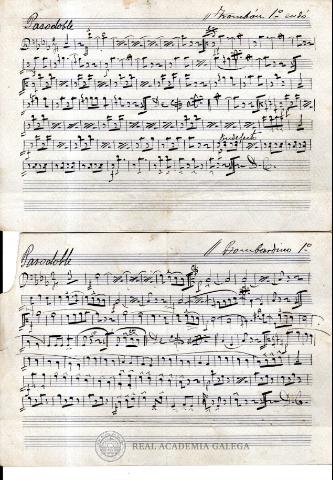 Pasodoble
Trombón 1º
D.C.
Pasodoble
Bombardino 1º
D.C.
REAL ACADEMIA GALEGA